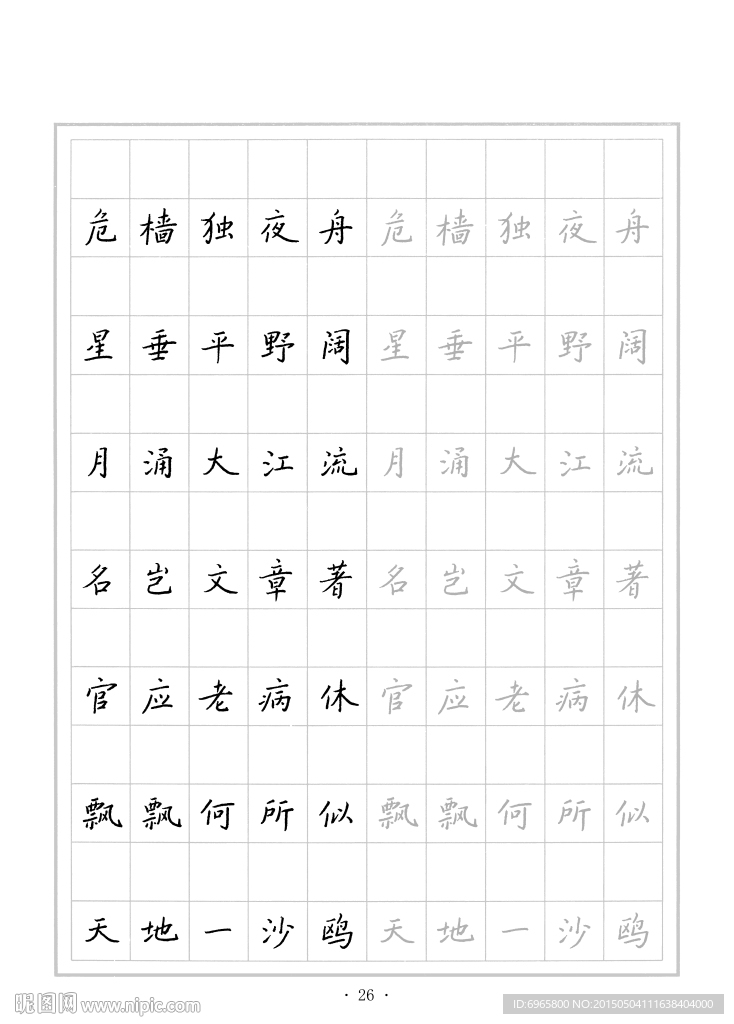 危樯独夜舟危樯独夜舟
星垂平野阔星垂平野阔
月涌大江流月涌大江流
名岂文章著名岂文章著
官应老病休官应老病休
飘飘何所似飘飘何所似
天地一沙鸥天地一沙鸥
· 26 ·
昵图网 www.nipic.com
ID:6965800 NO:20150504111638404000